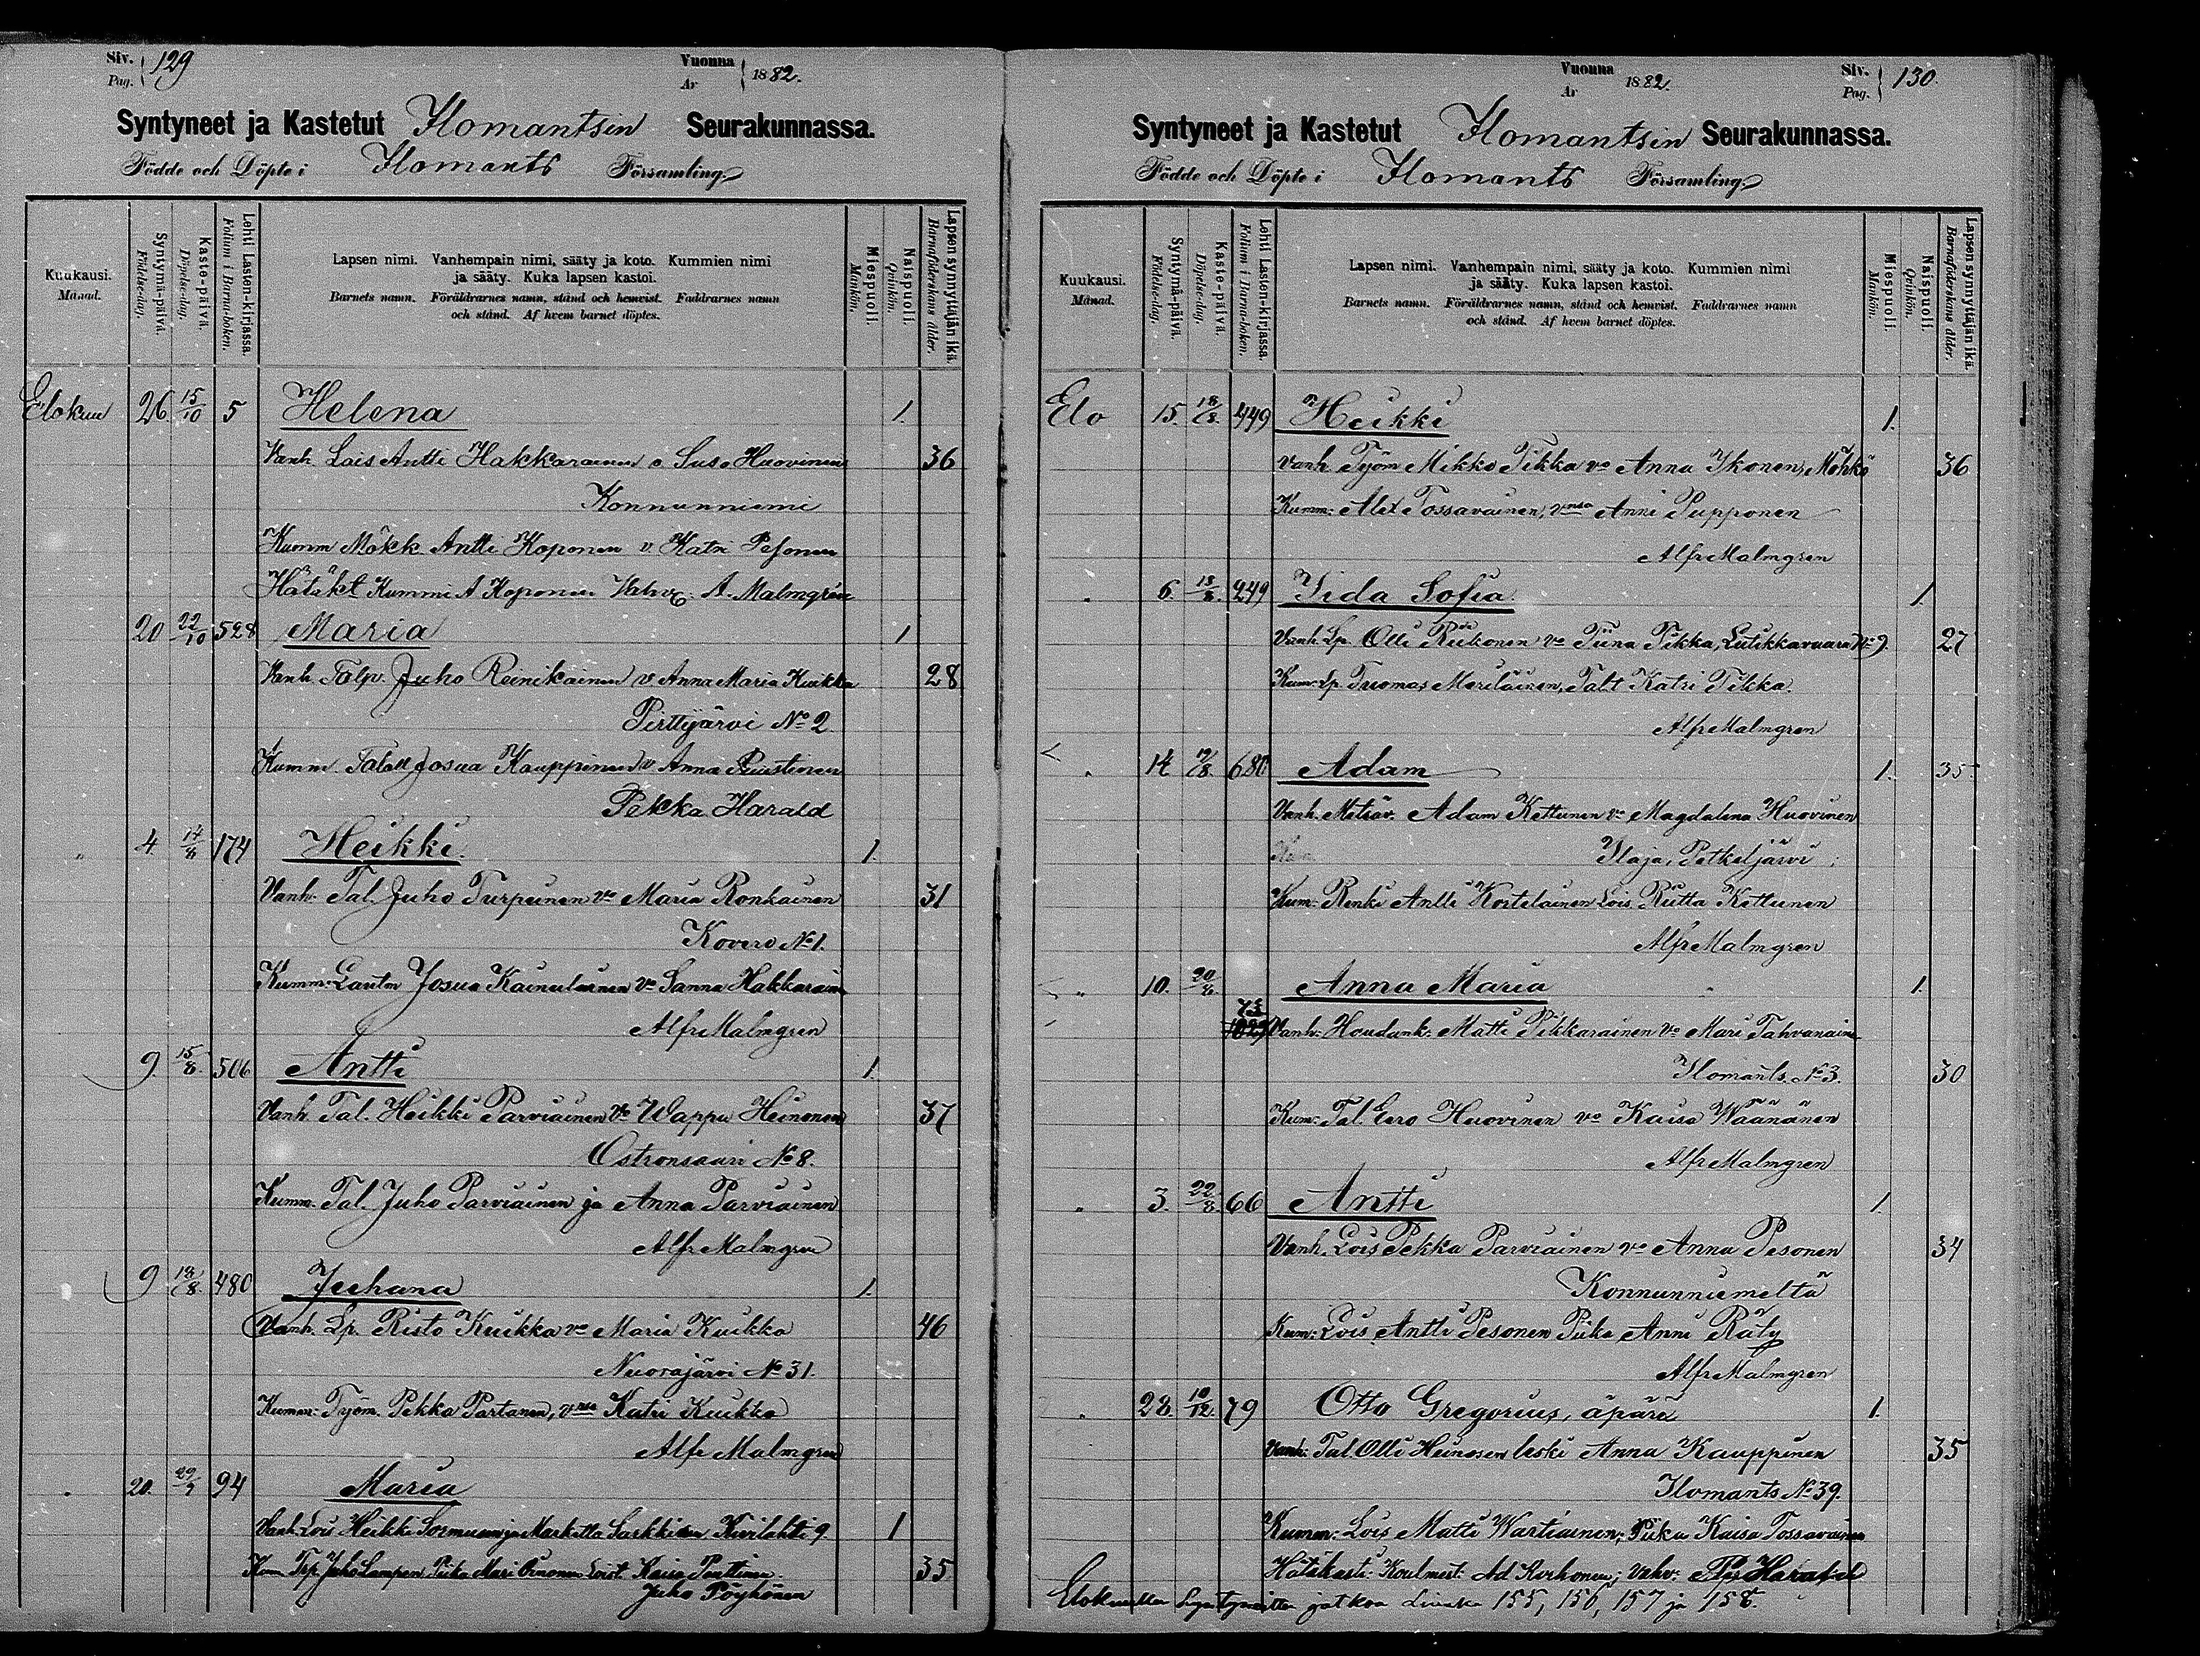 Siv. Pag. 129
Vuonna Ar 1882.
Syntyneet ja Kastetut Ilomantsin Seurakunnassa.
Födde och Döpte i Ilomants Församling.
Kuukausi. Månad.
Syntymä-päivä. Födelse-dag.
Kaste-päivä. Döpelse-dag.
Lehti Lasten-kirjassa. Folium i Barna-boken.
Lapsen nimi. Vanhempain nimi, sääty ja koto. Kummien nimi
ja sääty. Kuka lapsen kastoi.
Barnets namn. Föräldrarnes namn, stånd och hemvist. Faddrarnes namn
och stånd. Af hvem barnet döptes.
Miespuoli. Mankön.
Naispuoli. Qvinkön.
Lapsen synnyttäjän ikä. Barnaföderskans ålder.
Elokuu 26 15/10 5 Helena 1.
Vanh. Lois Antti Hakkarainen v Susa Huovinen 36
Konnunniemi
Kumm Mökk. Antti Koponen v. Katri Pesonen
Hätäkt Kummi A Koponen Vahv: A. Malmgrén
20 22/10 528 Maria 1
Vanh Talp. Juho Reinikainen v Anna Maria Kuikka 28
Pirttijärvi No 2.
Kumm. Talall Josua Kauppinen v Anna Puustinen
Pekka Harald
" 4. 14/8 174 Heikki 1.
Vanh. Tal. Juho Turpeinen vo Maria Ronkainen 31
Kovero No 1.
Kumm: Lautm Josua Kainulainen vo Sanna Hakkarain
Alfr Malmgren
9. 15/8. 506 Antti 1.
Vanh Tal. Heikki Parviainen vo Wappu Heinonen 37
Ostronsaari No 8.
Kumm. Tal. Juho Parviainen ja Anna Parviainen
Alfr Malmgren
9 18/8. 480 Juhana 1.
Vanh. Lp. Risto Kuikka vo Maria Kuikka 46
Nuorajärvi No 31.
Kumm: Tyom. Pekka Partanen, vnsa Katri Kuikka
Alfr Malmgren
" 20. 29/9 94 Maria
Vanh Lois Heikki Sormunen ja Marketta Sarkkinen Kivilahti 9. 1
Kum Tsp. Juho Lampen Piika Mari Loist. Kaisa Penttinen. 35
Juho Pöyhönen
Vuonna Ar 1882.
Siv. Pag. 130.
Syntyneet ja Kastetut Ilomantsin Seurakunnassa.
Födde och Döpte i Ilomants Församling.
Kuukausi. Månad.
Syntymä-päivä. Födelse-dag.
Kaste-päivä. Döpelse-dag.
Lehti Lasten-kirjassa. Folium i Barna-boken.
Lapsen nimi. Vanhempain nimi, sääty ja koto. Kummien nimi
ja sääty. Kuka lapsen kastoi.
Barnets namn. Föräldrarnes namn, stånd och hemvist. Faddrarnes namn
och stånd. Af hvem barnet döptes.
Miespuoli. Mankön.
Naispuoli. Qvinkön.
Lapsen synnyttäjän ikä. Barnaföderskans ålder.
Elo 15. 18/8. 449 Heikki 1.
Vanh Työm Mikko Tikka vo Anna Ikonen, Möhkö 36
Kumm: Alex Tossavainen, vnsa Anni Pupponen
Alfr Malmgren
" 6. 18/8. 249 Iida Sofia 1.
Vanh. Lp. Olli Riikonen vo Tiina Tikka, Lutikkavaara No 9. 27
Kum: Lp. Tuomas Meriläinen, Talt Katri Tikka.
Alfr Malmgren
" 14 19/8. 680 Adam 1. 35
Vanh. Metsäv. Adam Kettunen vo Magdalena Huovinen
Ilaja, Petkeljärvi
Kum: Renki Antti Kortelainen Lois. Riitta Kettunen
Alfr Malmgren
" 10. 20/8 Anna Maria 1.
Vanh: Houdank: Matti Pikkarainen vo Mari Tahvanainen
Ilomants. No 3. 30
Kum: Tal. Eero Huovinen vo Kaisa Wäänänen
Alfr Malmgren
" 3. 22/8. 66 Antti 1.
Vanh. Lois Pekka Parviainen vo Anna Pesonen 34
Konnunniemeltä
Kum: Lois Antti Pesonen Piika Anni Räty
Alfr Malmgren
" 28. 10/12. 79 Otto Gregorius, äpärä 1.
Vanh: Tal. Olli Heinosen leski Anna Kauppinen 35
Ilomants No 39.
Kumm: Lois Matti Wartiainen; Piika Kaisa Tossavainen
Hätäkasti: Koulmest. Ad Korhonen; Vahv: P. Harald
Elokuulla Syntyneitten jatkoa Sivulla 155, 156, 157 ja 158.